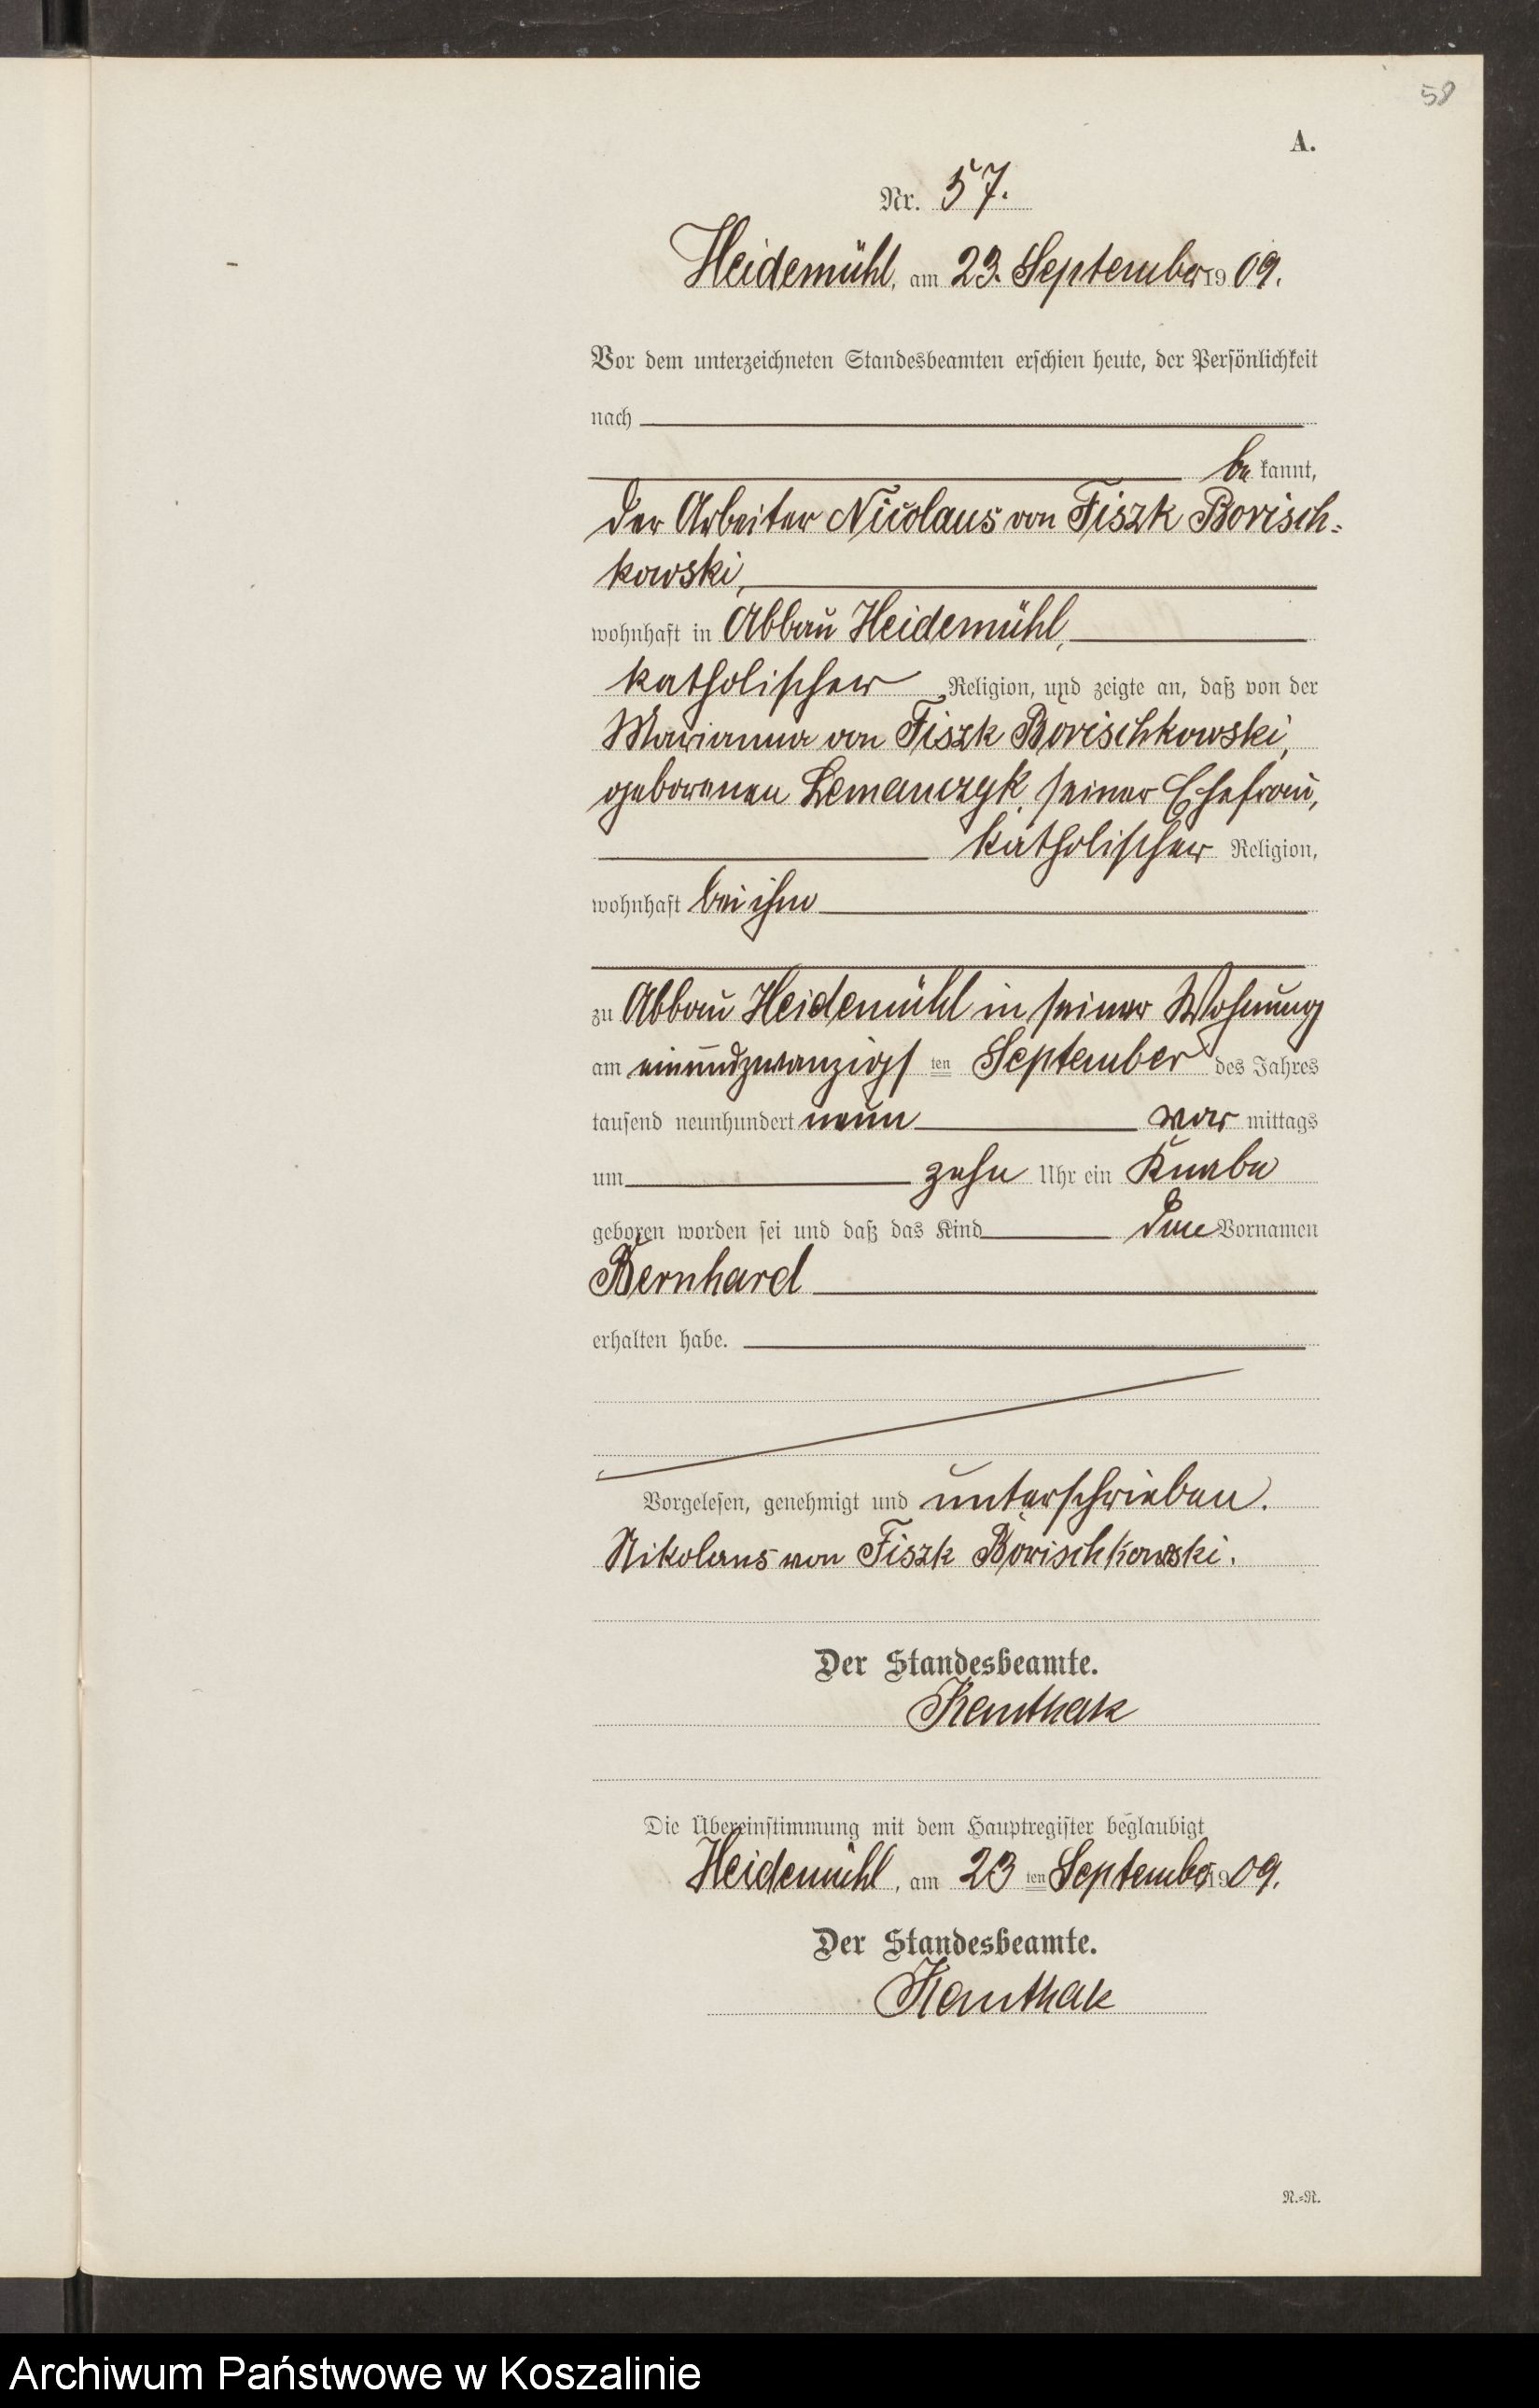 58
A.
Nr. 57.
Heidemühl, am 23. September 1909.
Vor dem unterzeichneten Standesbeamten erschien heute, der Persönlichkeit
nach
be kannt,
der Arbeiter Nicolaus von Fiszk Borisch-
kowski,
wohnhaft in Abbau Heidemühl,
katholischer Religion, und zeigte an, daß von der
Marianna von Fiszk Borischkowski,
geborenen Lemanczyk, seiner Ehefrau,
katholischer Religion,
wohnhaft bei ihm
zu Abbau Heidemühl in seiner Wohnung
am einundzwanzigsten September des Jahres
tausend neunhundert neun vormittags
um zehn Uhr ein Knabe
geboren worden sei und daß das Kind den Vornamen
Bernhard
erhalten habe.
Vorgelesen, genehmigt und unterschrieben.
Nikolaus von Fiszk Borischkowski.
Der Standesbeamte.
Die Übereinstimmung mit dem Hauptregister beglaubigt
Heidemühl, am 23ten September 1909.
Der Standesbeamte.
N.=N.
Archiwum Państwowe w Koszalinie